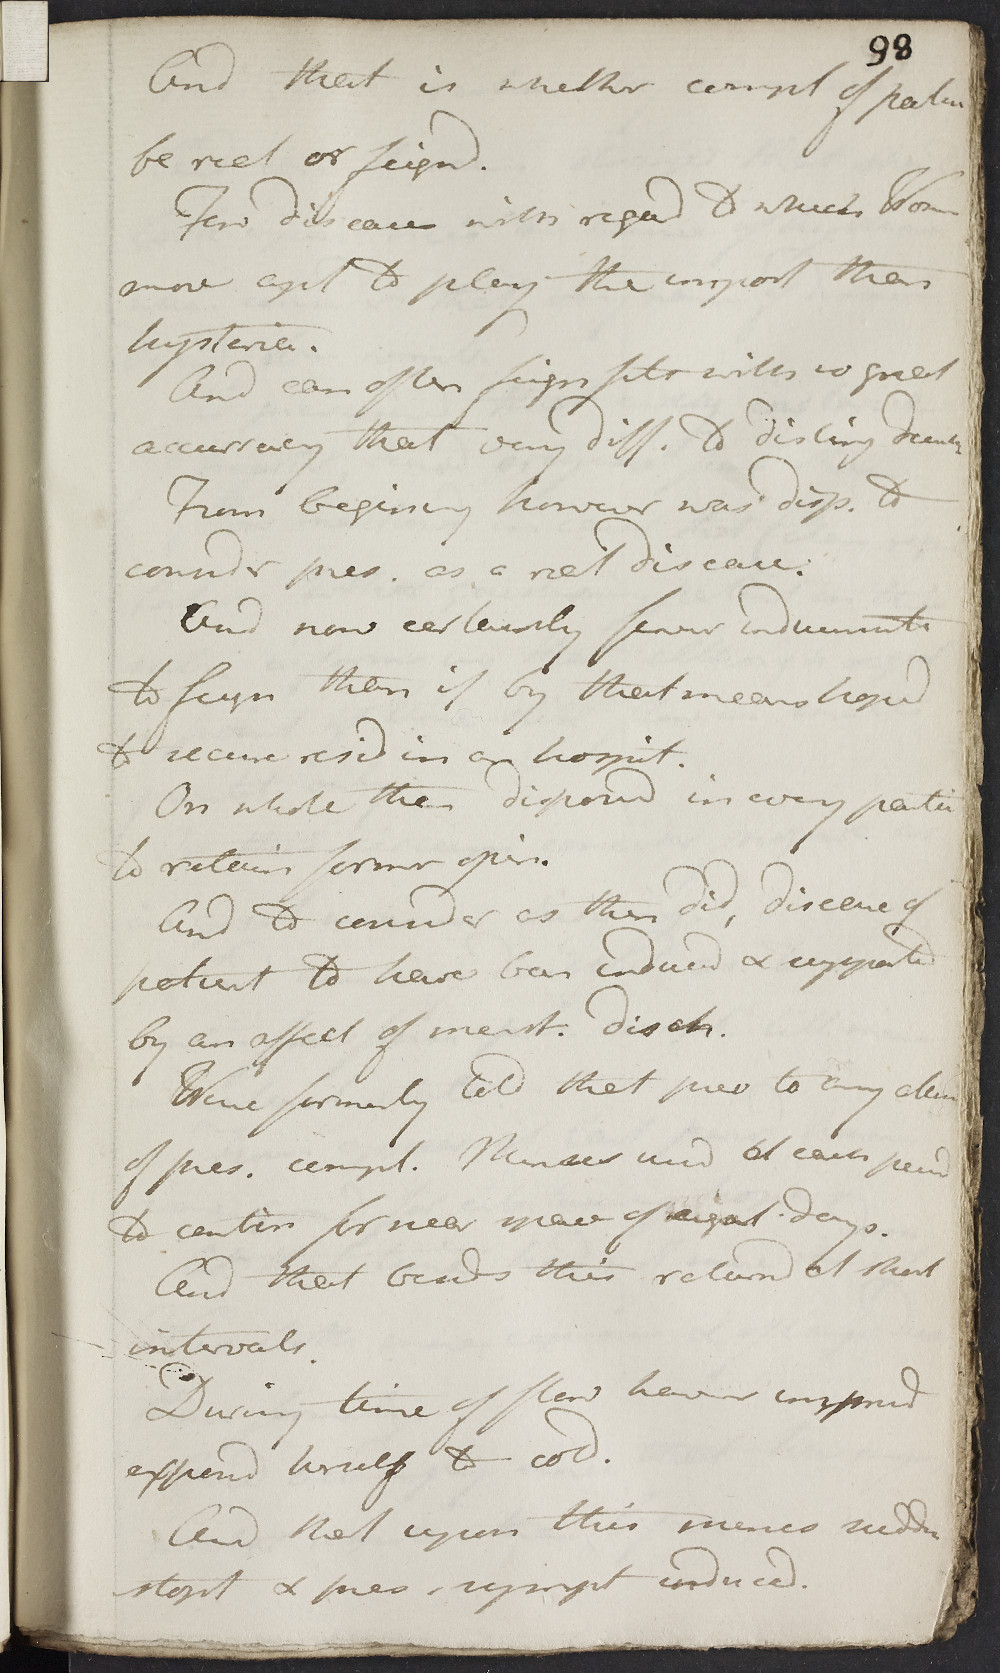 98
And that is whether compl of patien
be real or feign'd.
Few diseases with regard to which Wom
more apt to play the impost than
hysteria.
And can often feign fits with so great
accurracy that very diff. to disting
From begining however was disp. to
consider pres. as a real disease.
And now certainly fewer inducements
to feign than if by that means hop'd
to secure resid in an hospit.
On whole then dispos'd in every partic
to retain former opin.
And to consider as then did, disease of
patient to have been induced & supported
by an affect of menst. disch.
Were formerly told that prev to any
of pres. compl. Menses us'd at each period
to contin for near space of eight days.
And that besides this return'd at short
intervals.
During time of flow however
expos'd herself to cold.
And that upon this menses sudden
stopt & pres. sympt induced.